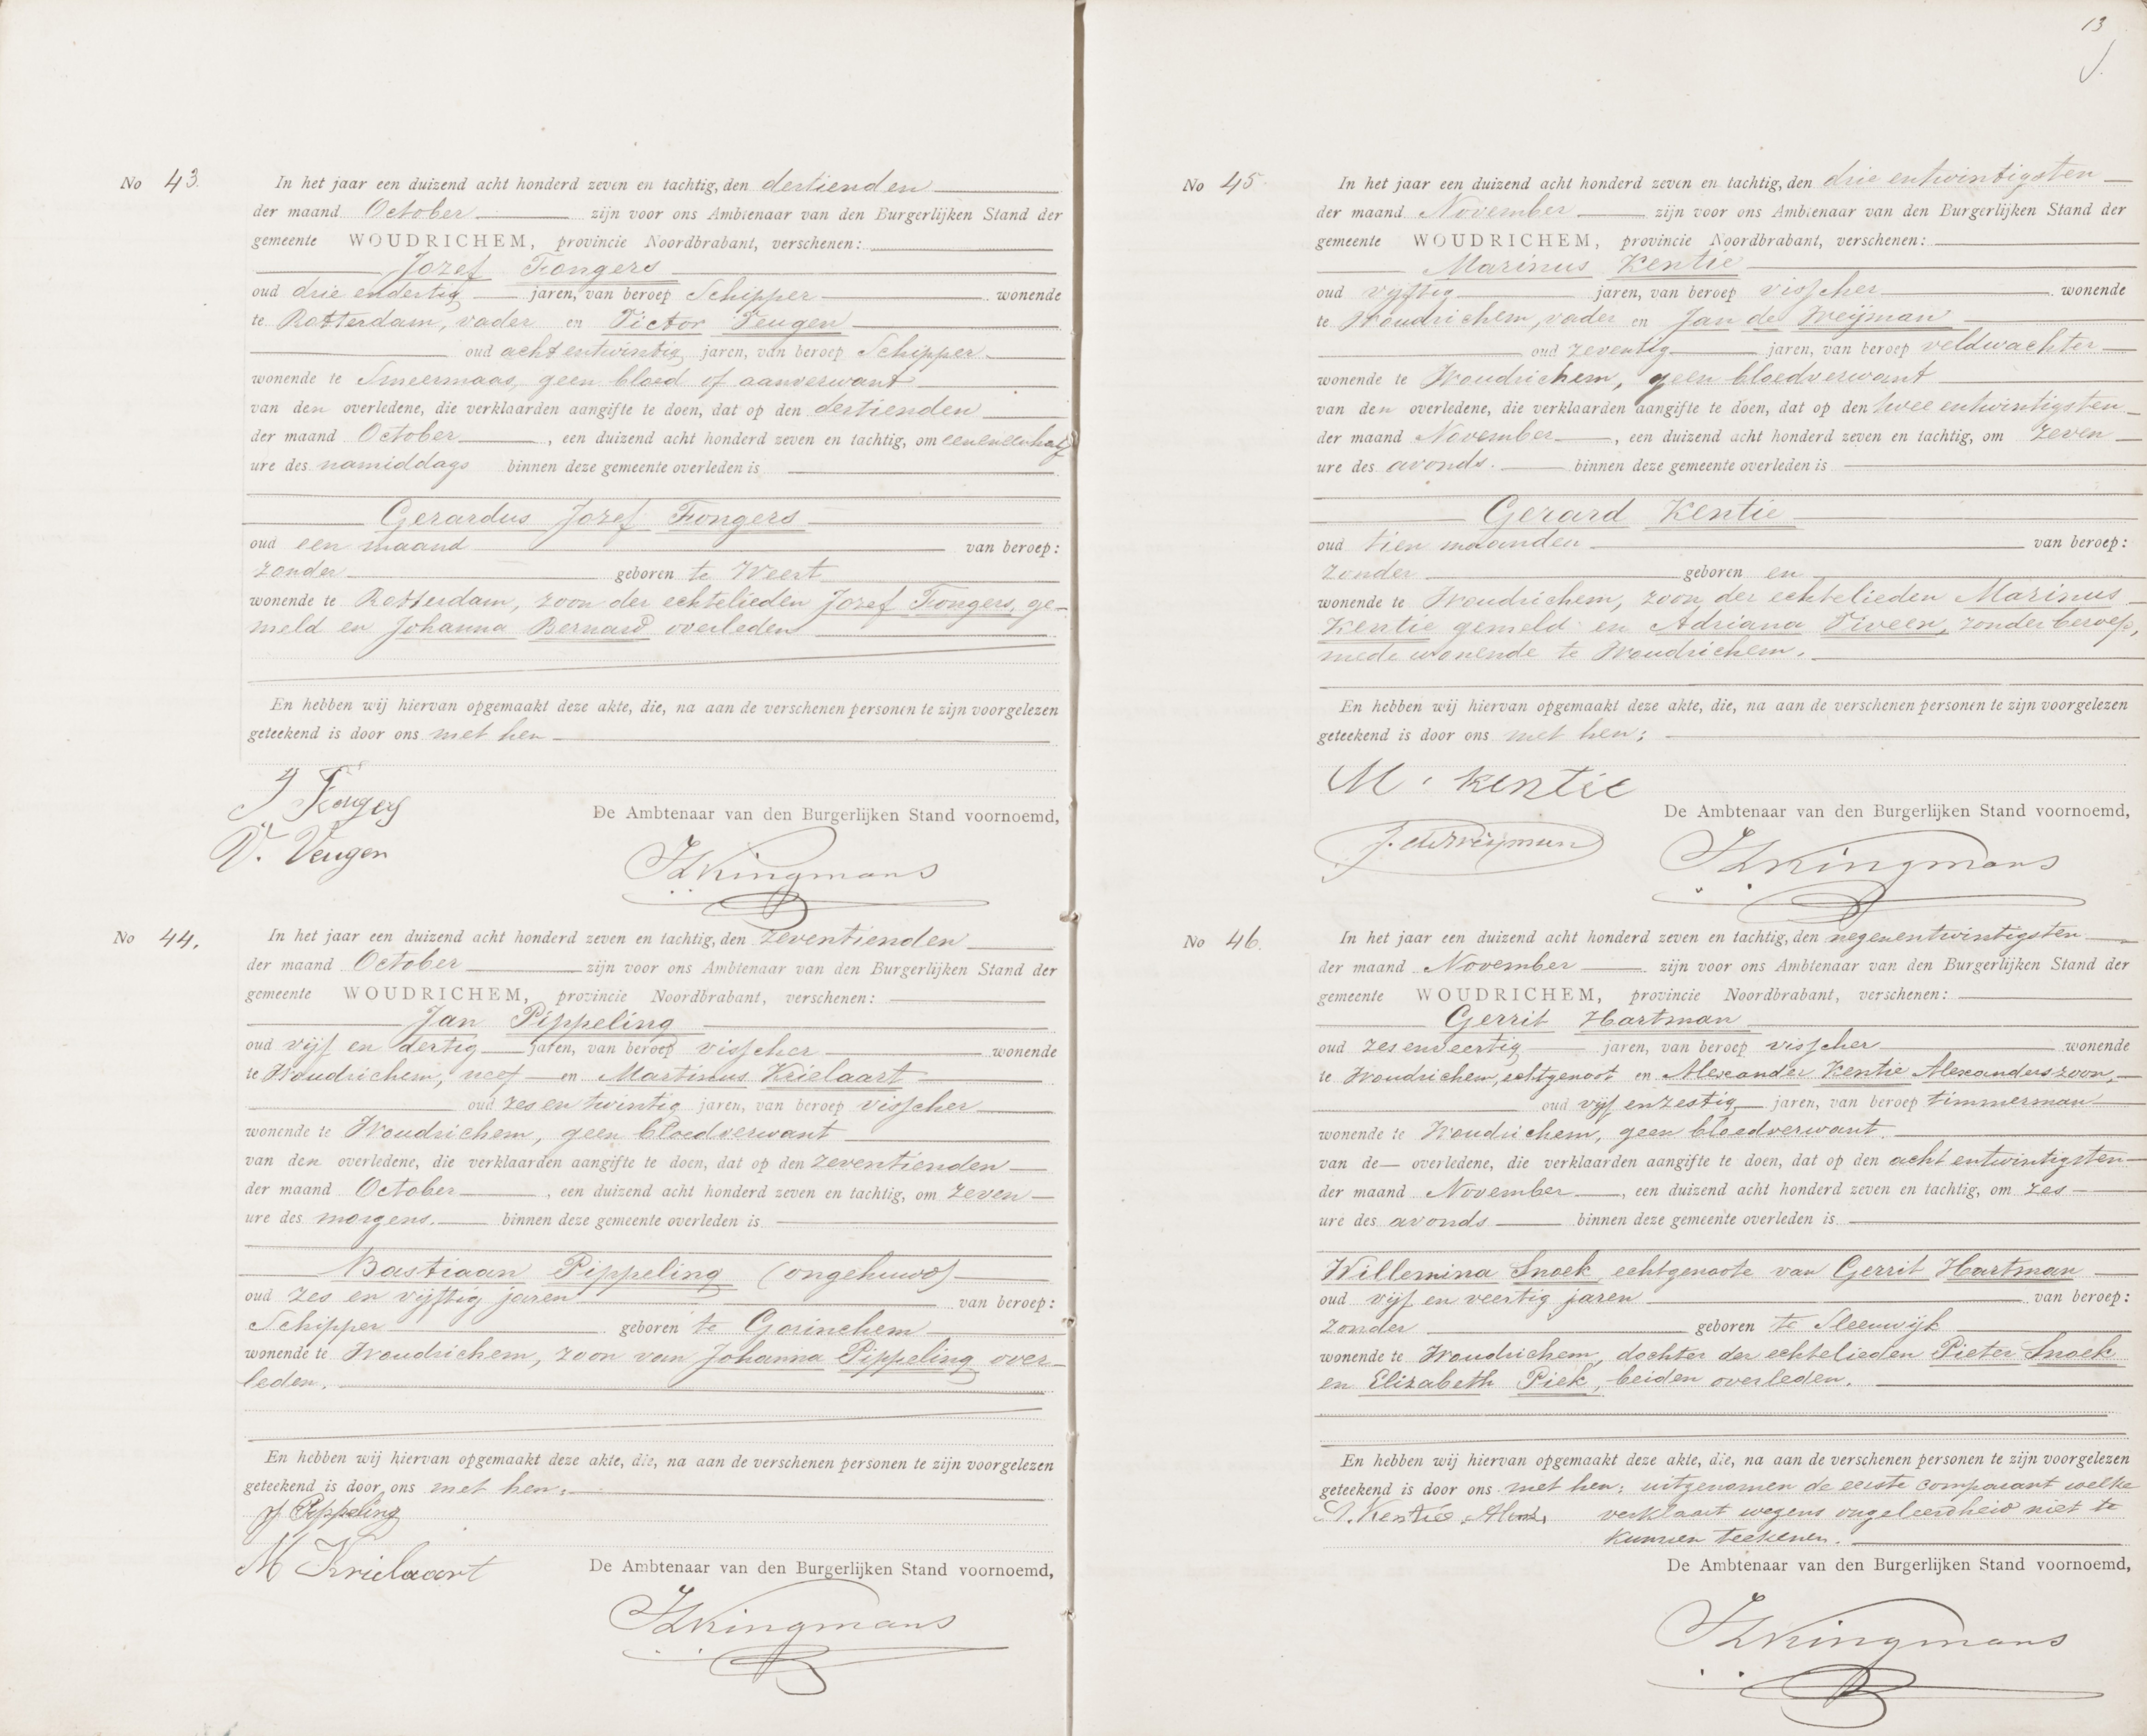 No 43.
In het jaar een duizend acht honderd zeven en tachtig, den dertienden
der maand October zijn voor ons Ambtenaar van den Burgerlijken Stand der
gemeente WOUDRICHEM, provincie Noordbrabant, verschenen:
Jozef Fongers
oud drie endertig jaren, van beroep Schipper wonende
te Rotterdam, vader en Victor Veugen
oud acht entwintig jaren, van beroep Schipper
wonende te Smeermaas, geen bloed of aanverwant
van den overledene, die verklaarden aangifte te doen, dat op den dertienden
der maand October, een duizend acht honderd zeven en tachtig, om eeneneenhalf
ure des namiddags binnen deze gemeente overleden is
Gerardus Jozef Fongers
oud een maand van beroep:
zonder geboren te Weert
wonende te Rotterdam, zoon der echtelieden Jozef Fongers, ge-
meld en Johanna Bernard overleden
En hebben wij hiervan opgemaakt deze akte, die, na aan de verschenen personen te zijn voorgelezen
geteekend is door ons met hen
J Fongers
V. Veugen
De Ambtenaar van den Burgerlijken Stand voornoemd,
Kingmans
No 44.
In het jaar een duizend acht honderd zeven en tachtig, den zeventienden
der maand October zijn voor ons Ambtenaar van den Burgerlijken Stand der
gemeente WOUDRICHEM, provincie Noordbrabant, verschenen:
Jan Pippeling
oud vijf en dertig jaren, van beroep visscher wonende
te Woudrichem, neef en Martinus Krielaart
oud zes en twintig jaren, van beroep visscher
wonende te Woudrichem, geen bloedverwant
van den overledene, die verklaarden aangifte te doen, dat op den zeventienden
der maand October, een duizend acht honderd zeven en tachtig, om zeven
ure des morgens. binnen deze gemeente overleden is
Bastiaan Pippeling (ongehuwd)
oud zes en vijftig jaren van beroep:
Schipper geboren te Gorinchem
wonende te Woudrichem, zoon van Johanna Pippeling over-
leden.
En hebben wij hiervan opgemaakt deze akte, die, na aan de verschenen personen te zijn voorgelezen
geteekend is door ons met hen.
J Pippeling
M Krielaart
De Ambtenaar van den Burgerlijken Stand voornoemd,
Kingmans
13
No 45.
In het jaar een duizend acht honderd zeven en tachtig, den drie entwintigsten
der maand November zijn voor ons Ambtenaar van den Burgerlijken Stand der
gemeente WOUDRICHEM, provincie Noordbrabant, verschenen:
Marinus Kentie
oud vijftig jaren, van beroep visscher wonende
te Woudrichem, vader en Jan de Weijman
oud zeventig jaren, van beroep veldwachter
wonende te Woudrichem, geen bloedverwant
van den overledene, die verklaarden aangifte te doen, dat op den twee entwintigsten
der maand November, een duizend acht honderd zeven en tachtig, om zeven
ure des avonds. binnen deze gemeente overleden is
Gerard Kentie
oud tien maanden van beroep:
zonder geboren en
wonende te Woudrichem, zoon der echtelieden Marinus
Kentie gemeld en Adriana Viveen, zonder beroep,
mede wonende te Woudrichem.
En hebben wij hiervan opgemaakt deze akte, die, na aan de verschenen personen te zijn voorgelezen
geteekend is door ons met hen;
M. Kentie
J. de Weijman
De Ambtenaar van den Burgerlijken Stand voornoemd,
Kingmans
No 46.
In het jaar een duizend acht honderd zeven en tachtig, den negenentwintigsten
der maand November zijn voor ons Ambtenaar van den Burgerlijken Stand der
gemeente WOUDRICHEM, provincie Noordbrabant, verschenen:
Gerrit Hartman
oud zes enveertig jaren, van beroep visscher wonende
te Woudrichem, echtgenoot en Alexander Kentie Alexanderszoon,
oud vijf enzestig jaren, van beroep timmerman
wonende te Woudrichem, geen bloedverwant.
van de overledene, die verklaarden aangifte te doen, dat op den acht entwintigsten
der maand November, een duizend acht honderd zeven en tachtig, om zes
ure des avonds binnen deze gemeente overleden is
Willemina Snoek echtgenoote van Gerrit Hartman
oud vijf en veertig jaren van beroep:
zonder geboren te Sleeuwijk
wonende te Woudrichem, dochter der echtelieden Pieter Snoek
en Elizabeth Piek, beiden overleden.
En hebben wij hiervan opgemaakt deze akte, die, na aan de verschenen personen te zijn voorgelezen
geteekend is door ons met hen; uitgenomen de eerste comparant welke
A. Kentie verklaart wegens ongeleerdheid niet te
kunnen teekenen.
De Ambtenaar van den Burgerlijken Stand voornoemd,
Kingmans